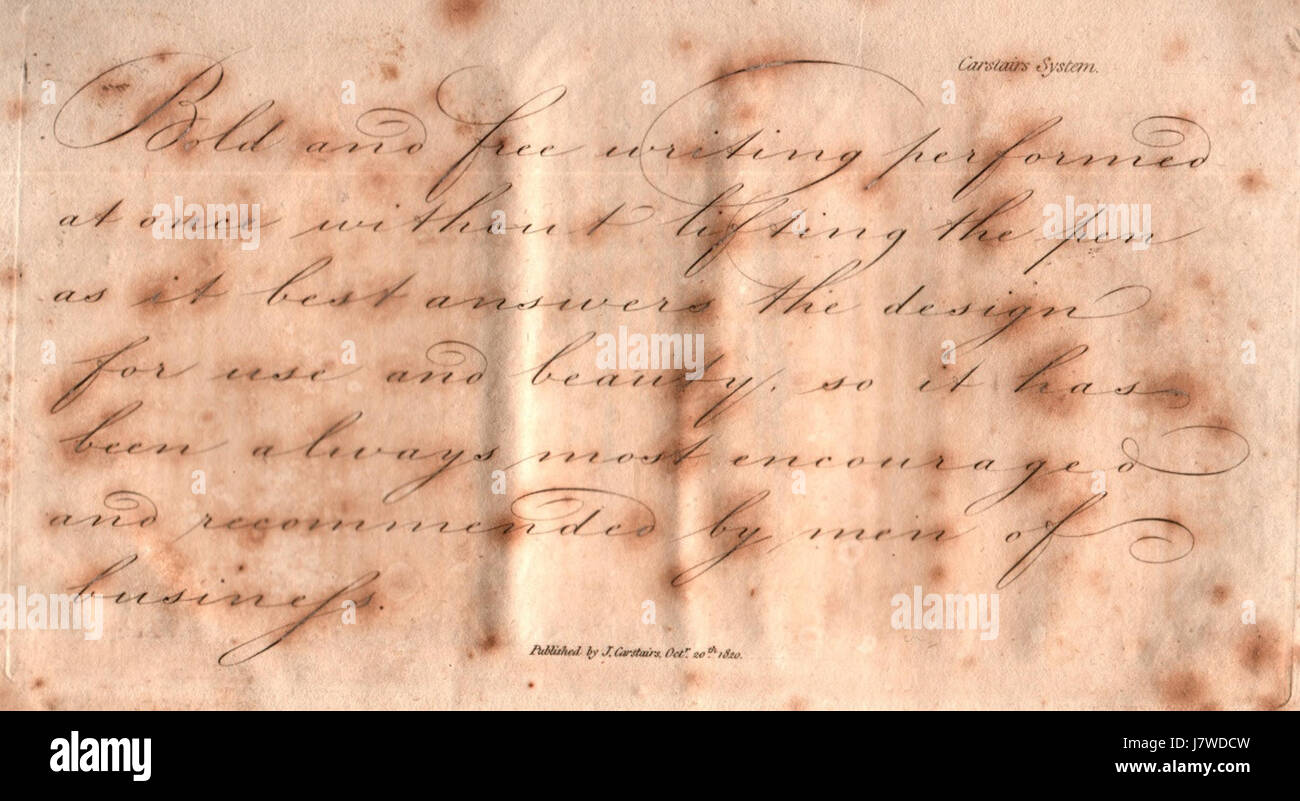 Carstairs System.
Bold and free writing performed
at once without lifting the pen
as it best answers the design
for use and beauty, so it has
been always most encouraged
and recommended by men of
busineſs.
Published by J. Carstairs, Octr. 20th. 1820.
alamy
alamy stock photo
J7WDCW
www.alamy.com